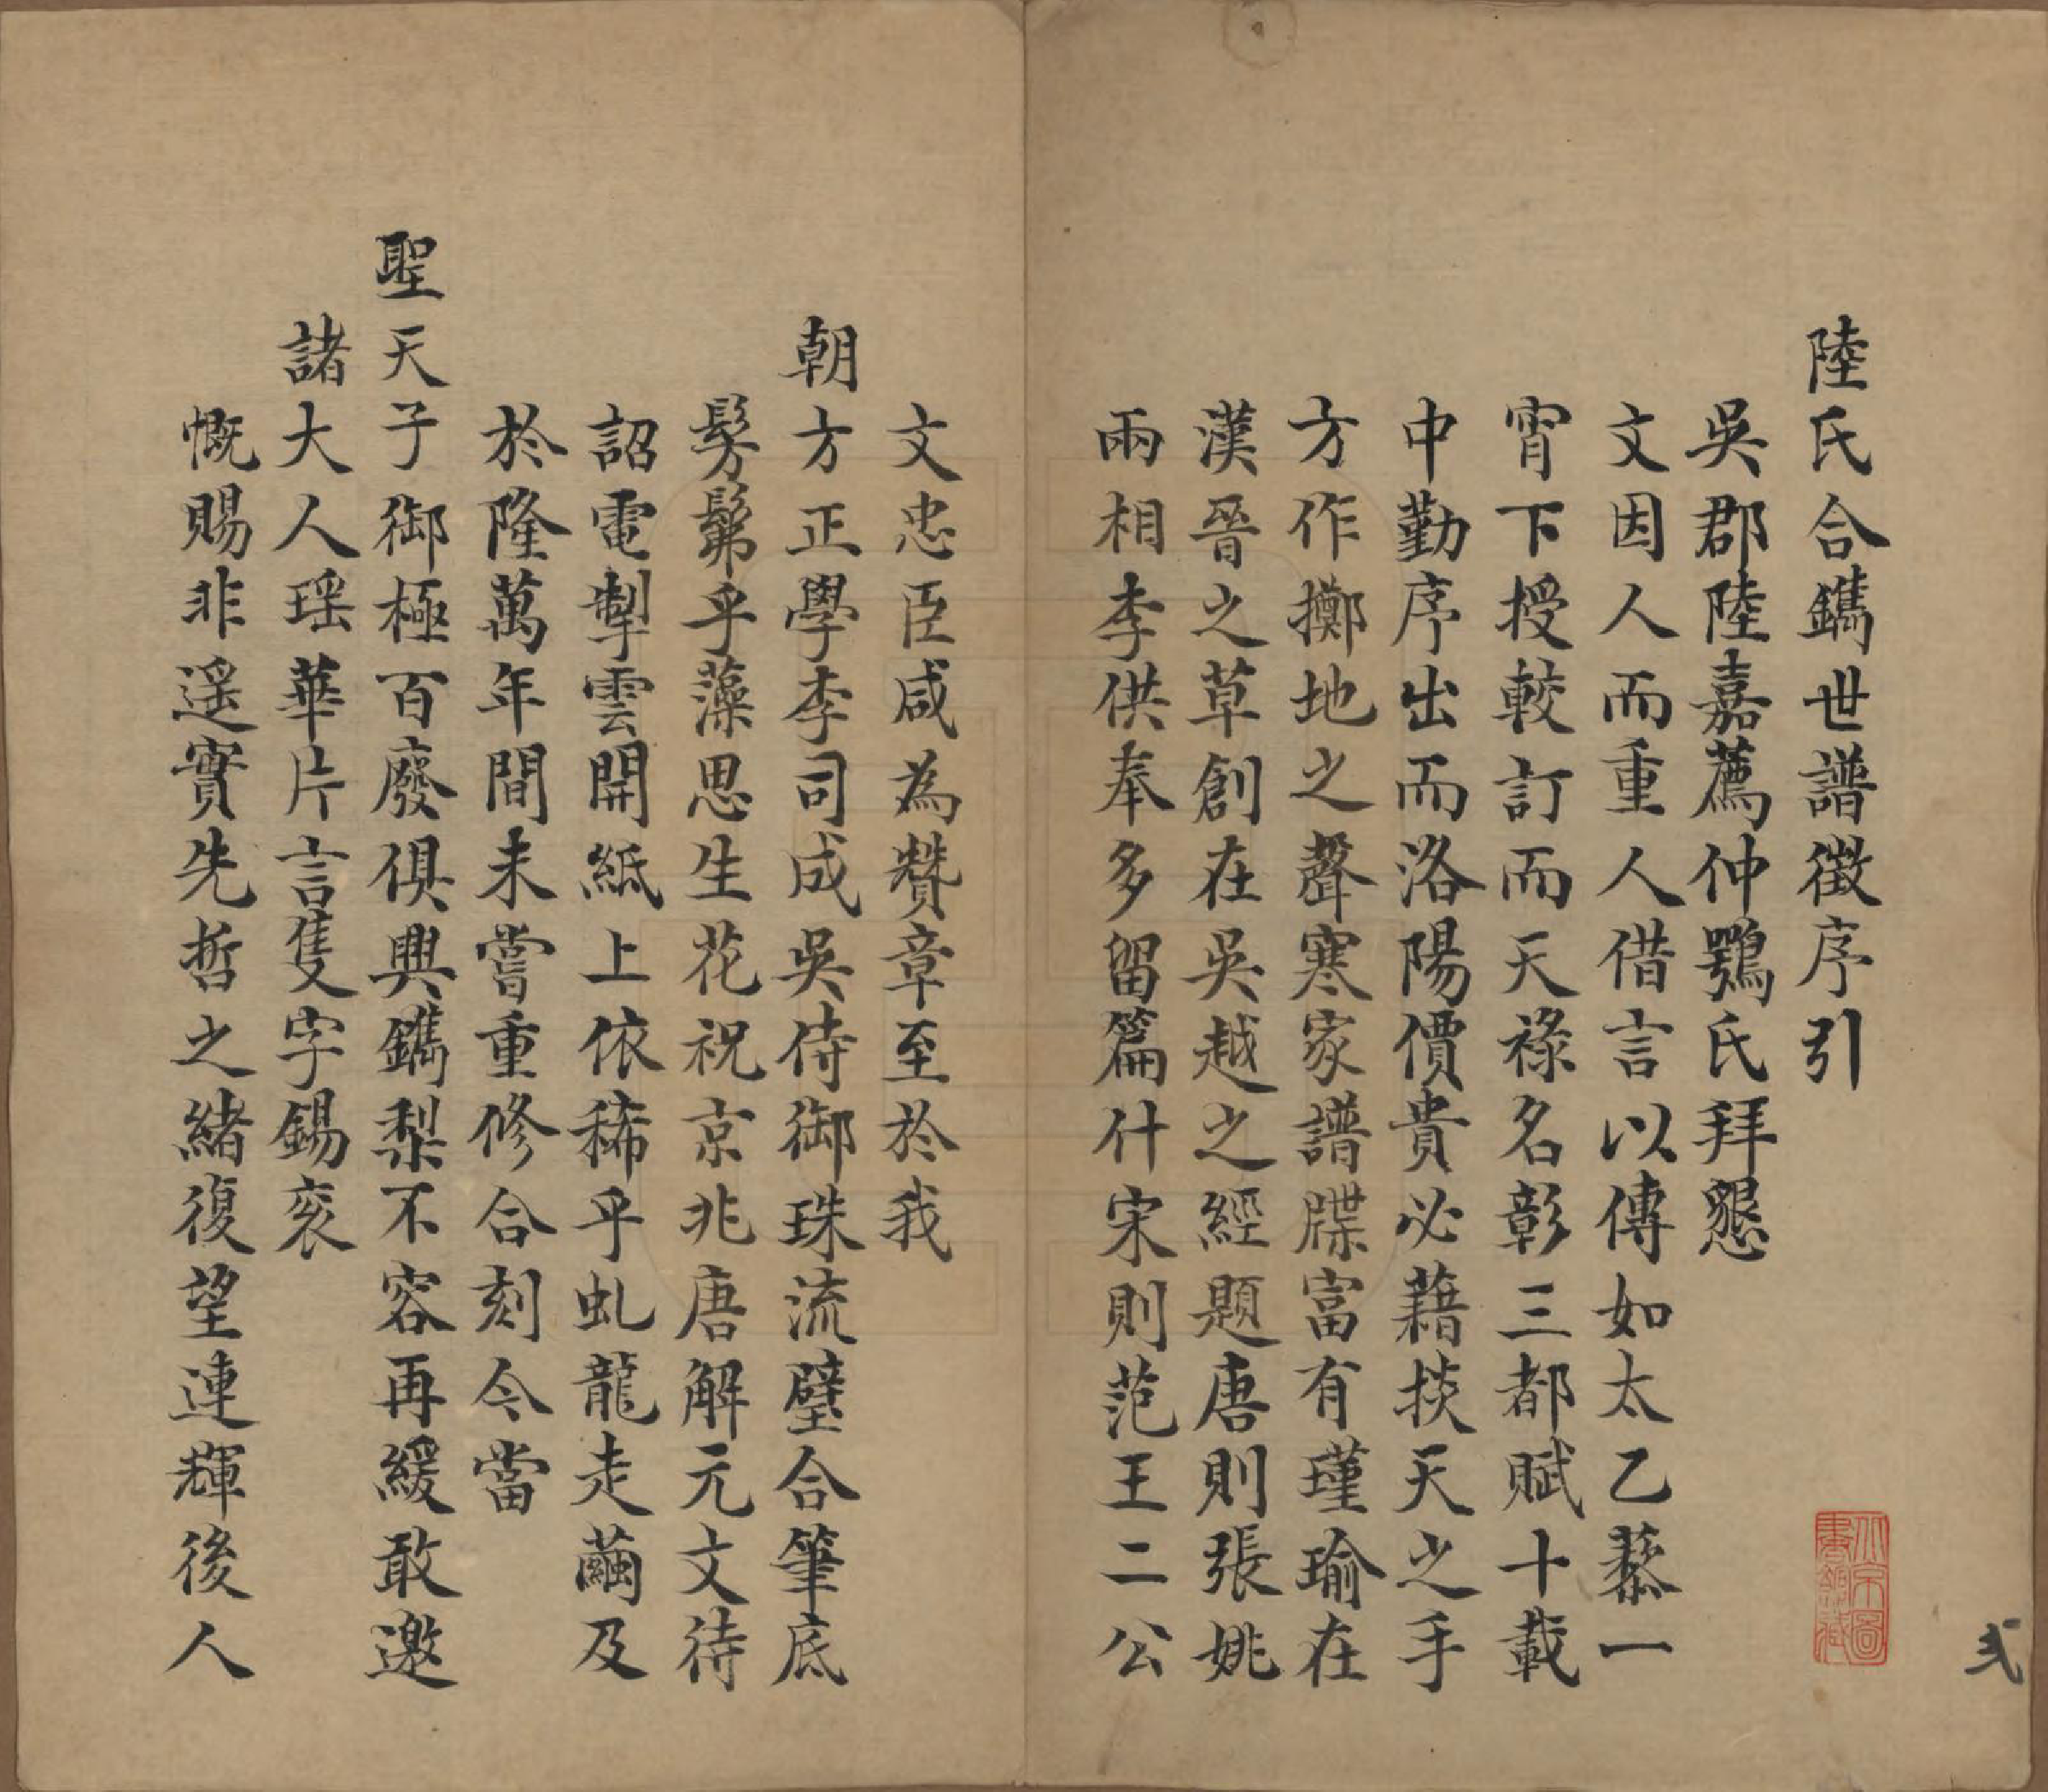 陸氏合鐫世譜徵序引
吳郡陸嘉薦仲鶚氏拜懇
文因人而重人借言以傳如太乙藜一
宵下授較訂而天祿名彰三都賦十載
中勤序出而洛陽價貴必藉掞天之手
方作擲地之聲寒家譜牒富有瑾瑜在
漢晉之草創在吳越之經題唐則張姚
兩相李供奉多留篇什宋則范王二公
文忠臣咸為贊章至於我
朝方正學李司成吳侍御珠流璧合筆底
髣髴乎藻思生花祝京兆唐解元文待
詔電掣雲開紙上依稀乎虬龍走繭及
於隆萬年間未嘗重修合刻今當
聖天子御極百廢俱興鐫梨不容再緩敢邀
諸大人瑶華片言隻字錫衮
慨賜非遥實先哲之緒復望連輝後人
京圖
書
弍